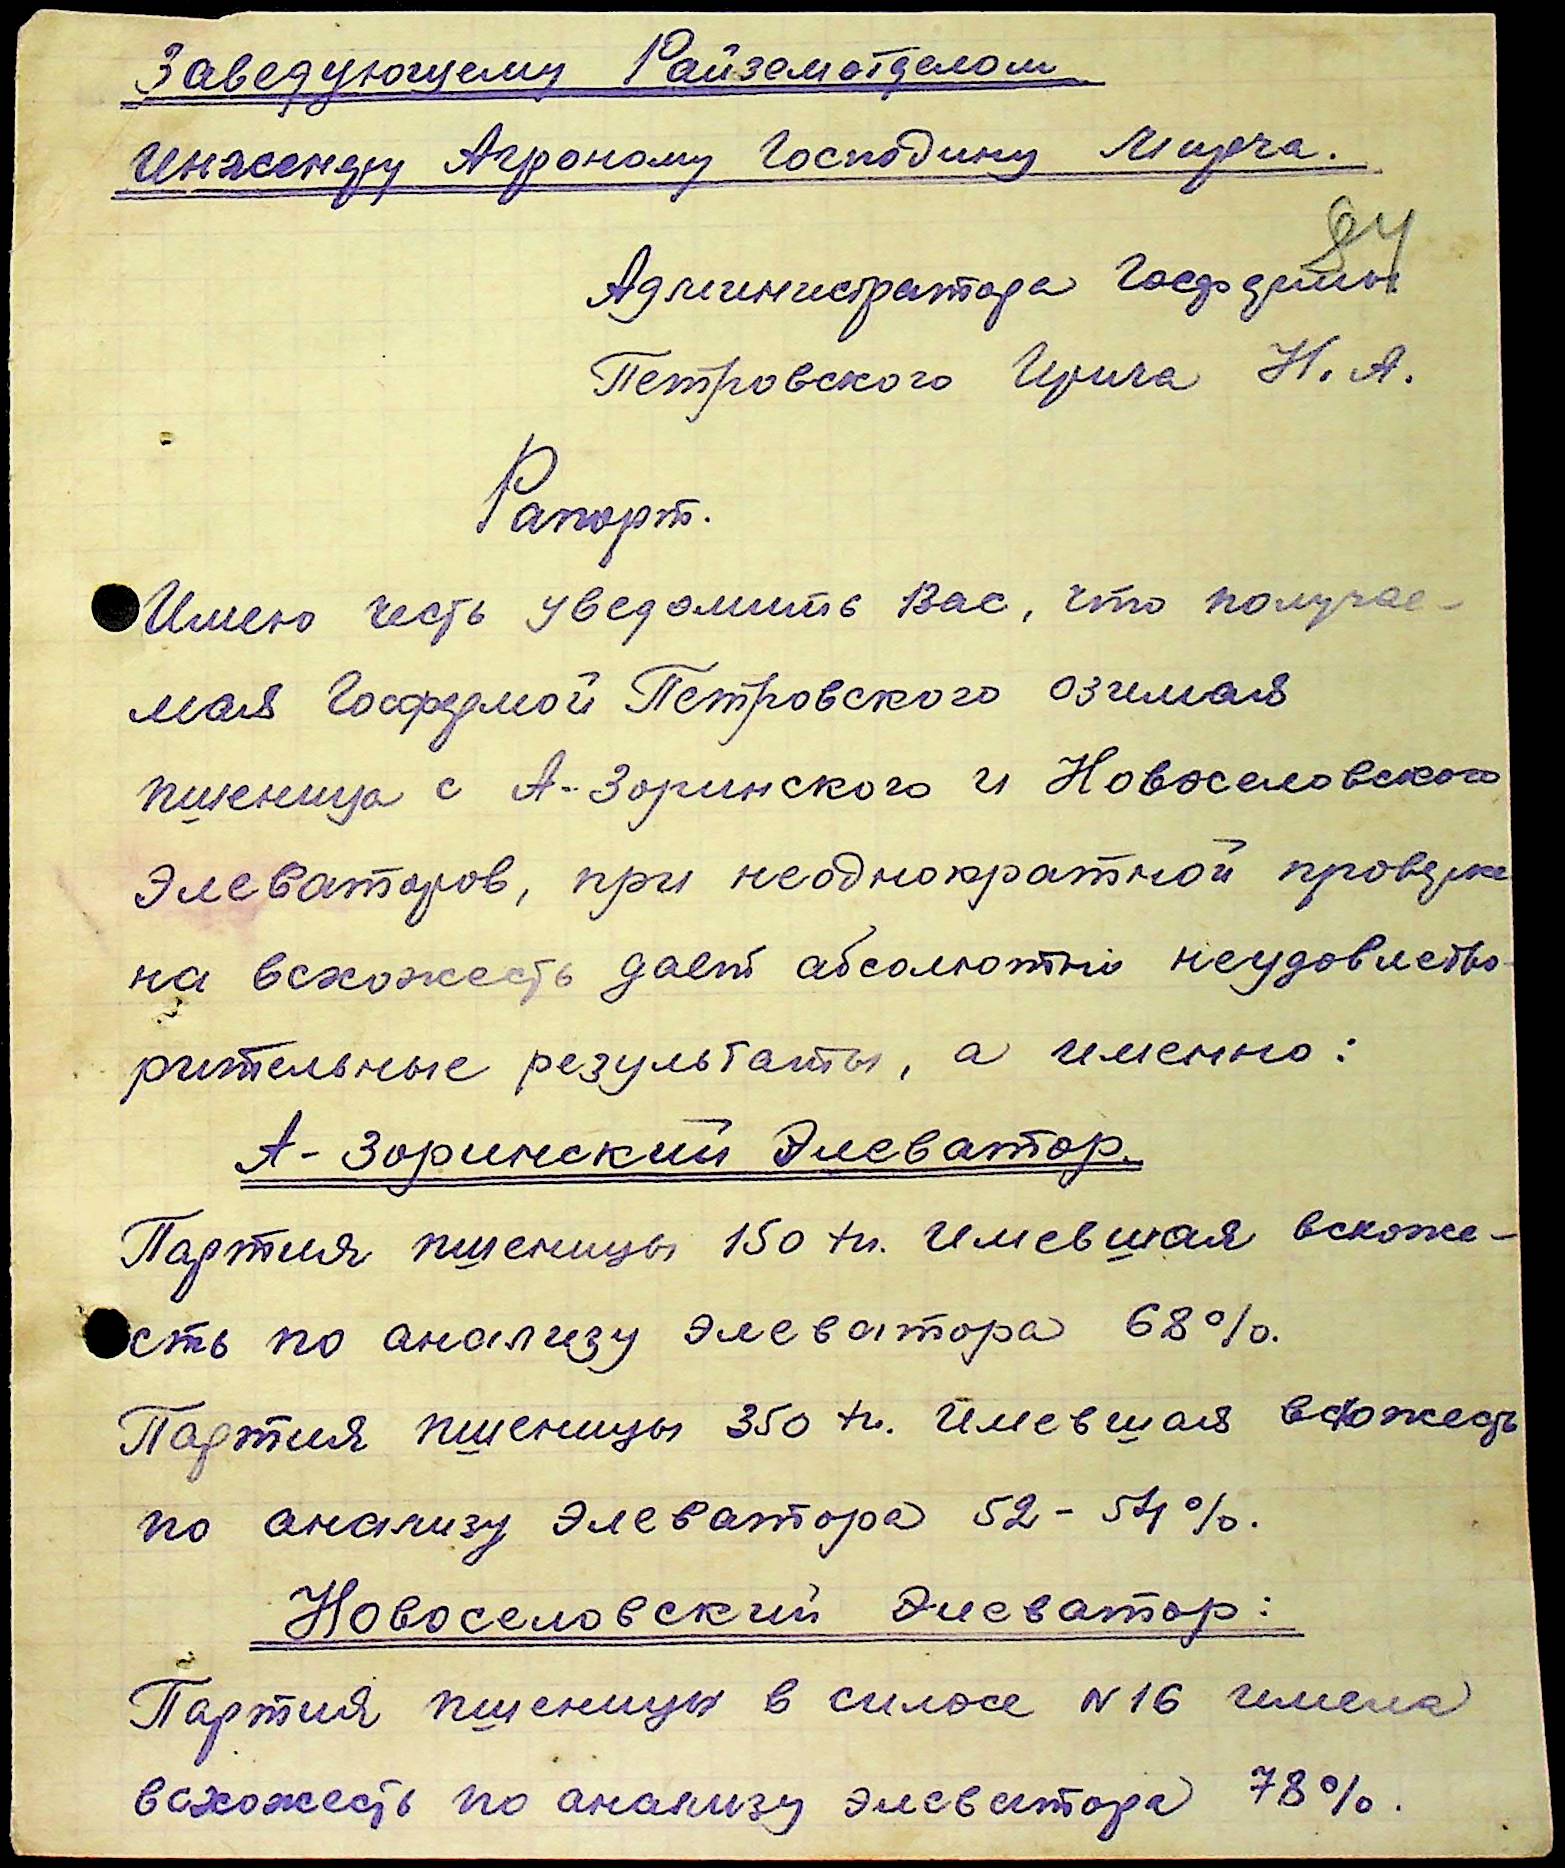 Заведующему Райземотделом
Инженеру Агроному Господину Мирча.
84
Администратора Госфермы
Петровского Ирича Н. А.
Рапорт.
Имею честь уведомить Вас, что получае-
мая Госфермой Петровского озимая
пшеница с А-Зоринского и Новоселовского
элеваторов, при неоднократной проверке
на всхожесть дает абсолютно неудовлетво-
рительные результаты, а именно:
А-Зоринский Элеватор.
Партия пшеницы 150 тн. имевшая всхоже-
сть по анализу элеватора 68%.
Партия пшеницы 350 тн. имевшая всхожесть
по анализу элеватора 52-54%.
Новоселовский Элеватор:
Партия пшеницы в силосе №16 имела
всхожесть по анализу элеватора 78%.